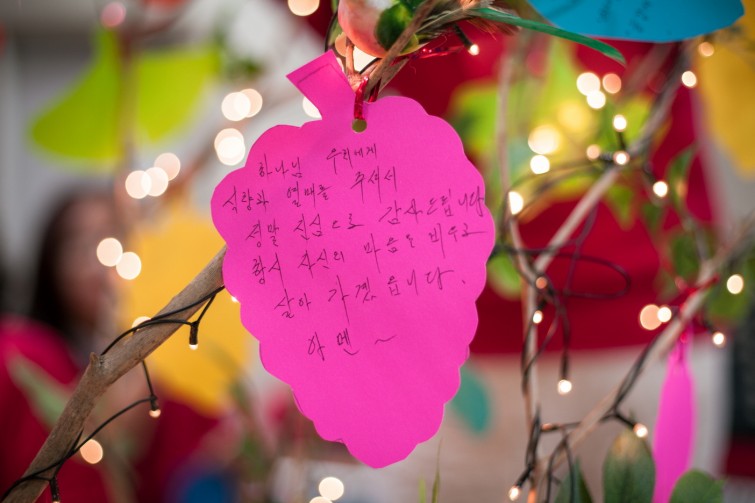 하나님 우리에게
식량과 열매를 주셔서
정말 진심으로 감사드립니다
항시 자신의 마음을 비우고
살아 가겠읍니다.
아멘~